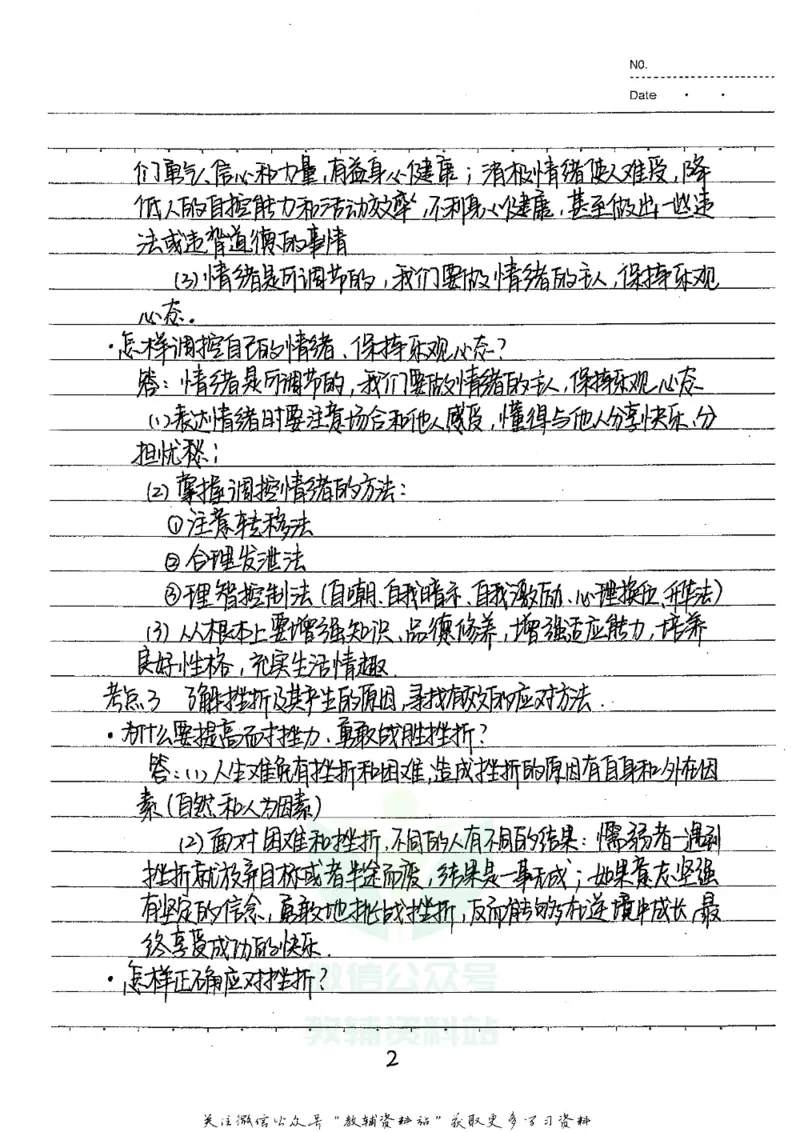 NO.
Date
们勇气、信心和力量,有益身心健康;消极情绪使人难受,降
低人的自控能力和活动效率,不利身心健康,甚至做出一些违
法或违背道德的事情
(2)情绪是可调节的,我们要做情绪的主人,保持乐观
心态.
·怎样调控自己的情绪、保持乐观心态?
答:情绪是可调节的,我们要做情绪的主人,保持乐观心态
(1)表达情绪时要注意场合和他人感受,懂得与他人分享快乐、分
担忧愁;
(2)掌握调控情绪的方法:
①注意转移法
②合理发泄法
③理智控制法(自嘲、自我暗示、自我激励、心理换位、升华法)
(3)从根本上要增强知识、品德修养,增强适应能力,培养
良好性格,充实生活情趣.
考点3 了解挫折及其产生的原因,寻找有效的应对方法.
·为什么要提高面对挫力、勇敢战胜挫折?
答:(1)人生难免有挫折和困难,造成挫折的原因有自身和外在因
素(自然和人为因素)
(2)面对困难和挫折,不同的人有不同的结果:懦弱者一遇到
挫折就放弃目标或者半途而废,结果是一事无成;如果意志坚强
有坚定的信念,勇敢地挑战挫折,反而能够在逆境中成长,最
终享受成功的快乐.
·怎样正确应对挫折?
微信公众号
教辅资料站
2
关注微信公众号"教辅资料站"获取更多学习资料